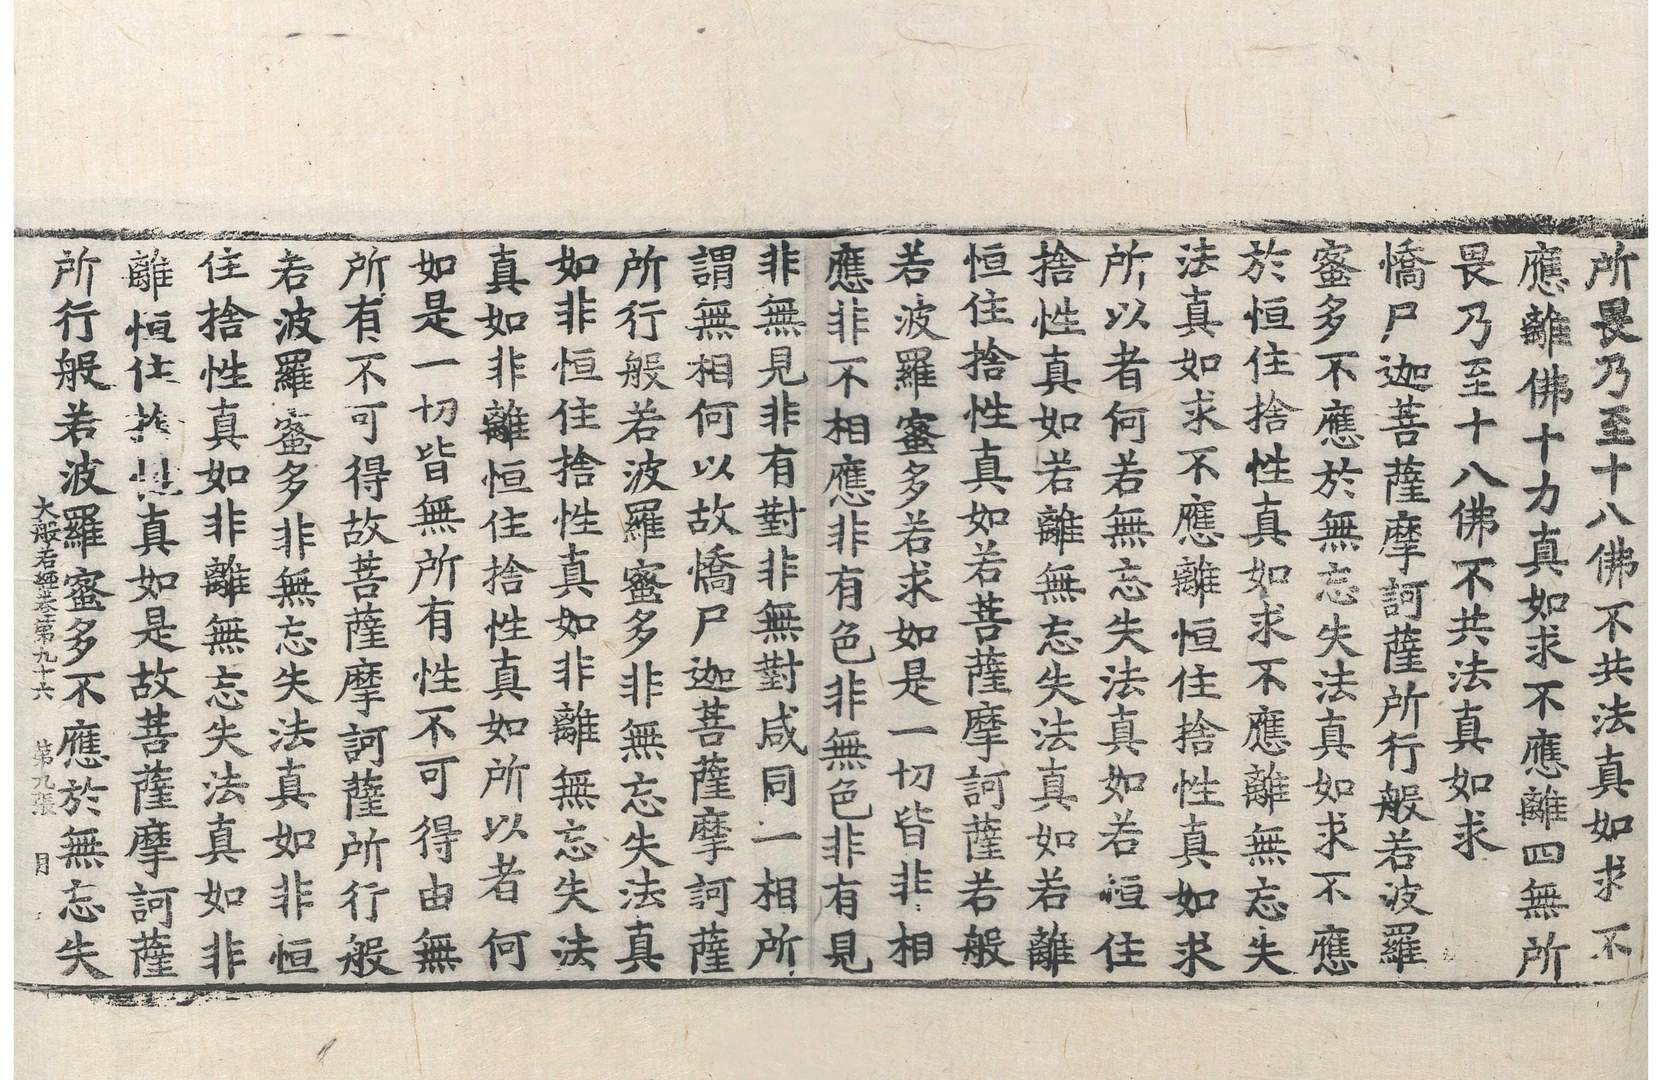 所畏乃至十八佛不共法真如求不
應離佛十力真如求不應離四無所
畏乃至十八佛不共法真如求
憍尸迦菩薩摩訶薩所行般若波羅
蜜多不應於無忘失法真如求不應
於恒住捨性真如求不應離無忘失
法真如求不應離恒住捨性真如求
所以者何若無忘失法真如若恒住
捨性真如若離無忘失法真如若離
恒住捨性真如若菩薩摩訶薩若般
若波羅蜜多若求如是一切皆非相
應非不相應非有色非無色非有見
非無見非有對非無對咸同一相所
謂無相何以故憍尸迦菩薩摩訶薩
所行般若波羅蜜多非無忘失法真
如非恒住捨性真如非離無忘失法
真如非離恒住捨性真如所以者何
如是一切皆無所有性不可得由無
所有不可得故菩薩摩訶薩所行般
若波羅蜜多非無忘失法真如非恒
住捨性真如非離無忘失法真如非
離恒住捨性真如是故菩薩摩訶薩
所行般若波羅蜜多不應於無忘失
大般若經卷第九十六 第九張 月